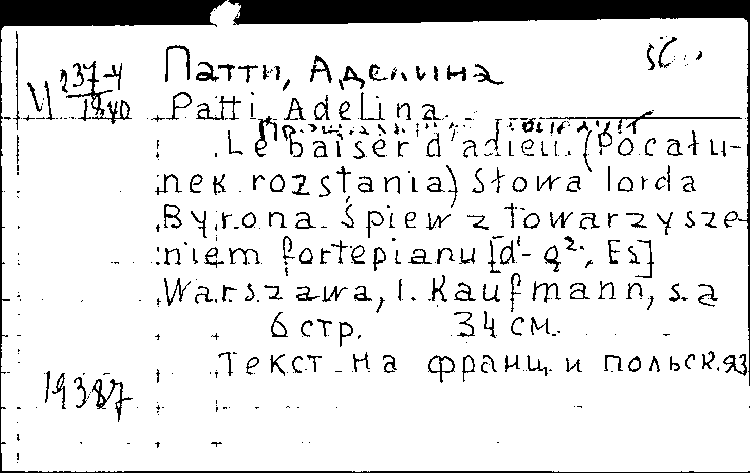 Патти, Аделина
М 237-4
1840
Patti, Adelina
Прощальный поцелуй
Le baiser d'adieu. (Pocału-
nek rozstania) Słowa lorda
Byrona. Śpiew z towarzysze-
niem fortepianu [d¹- g²; Es]
Warszawa, I. Kaufmann, s.a
6 стр. 34 см.
Текст на франц. и польск. яз
19387